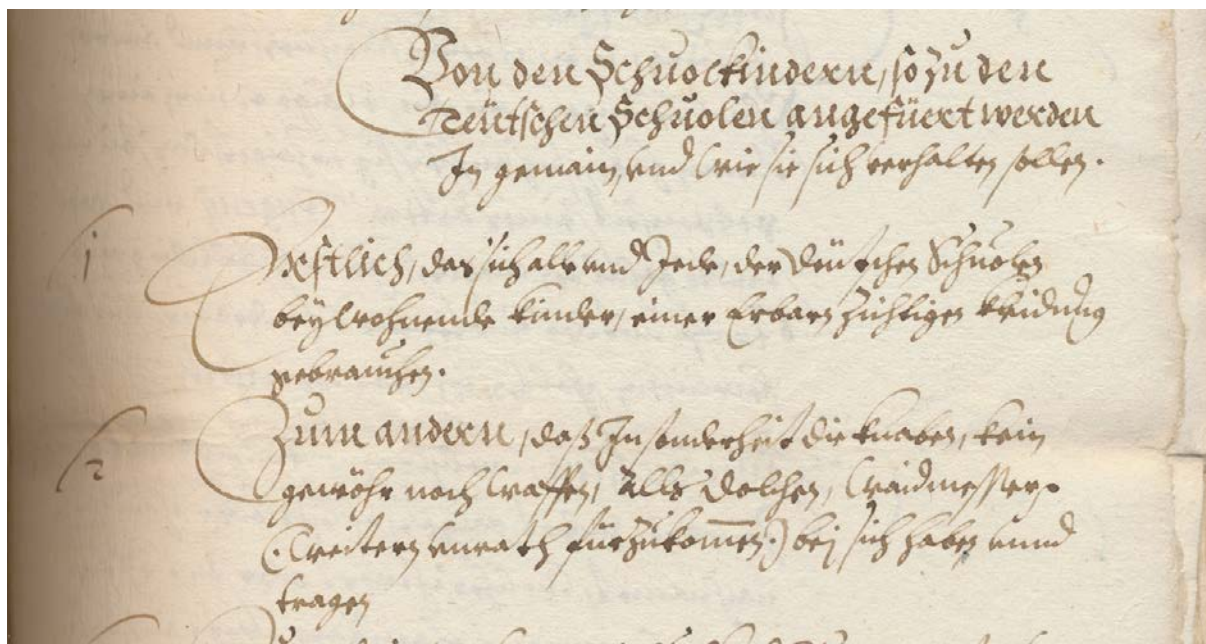 Von den Schuolkindern, so zu den
Teütschen Schuolen angefüert werden
In gemain, vnd wie sie sich verhalten sollen.
1 Erstlich, das sich alle vnd Jede, der Deütschen Schuolen
beywohnende kinder, einer Erbarn züchtigen kleidung
gebrauchen.
2 Zum andern, daß Insonderheit die knaben, kein
gewöhr noch waffen, alls Dolchen, waidmesser,
(:weitern vnrath fürzukomen:) beÿ sich haben vnnd
tragen